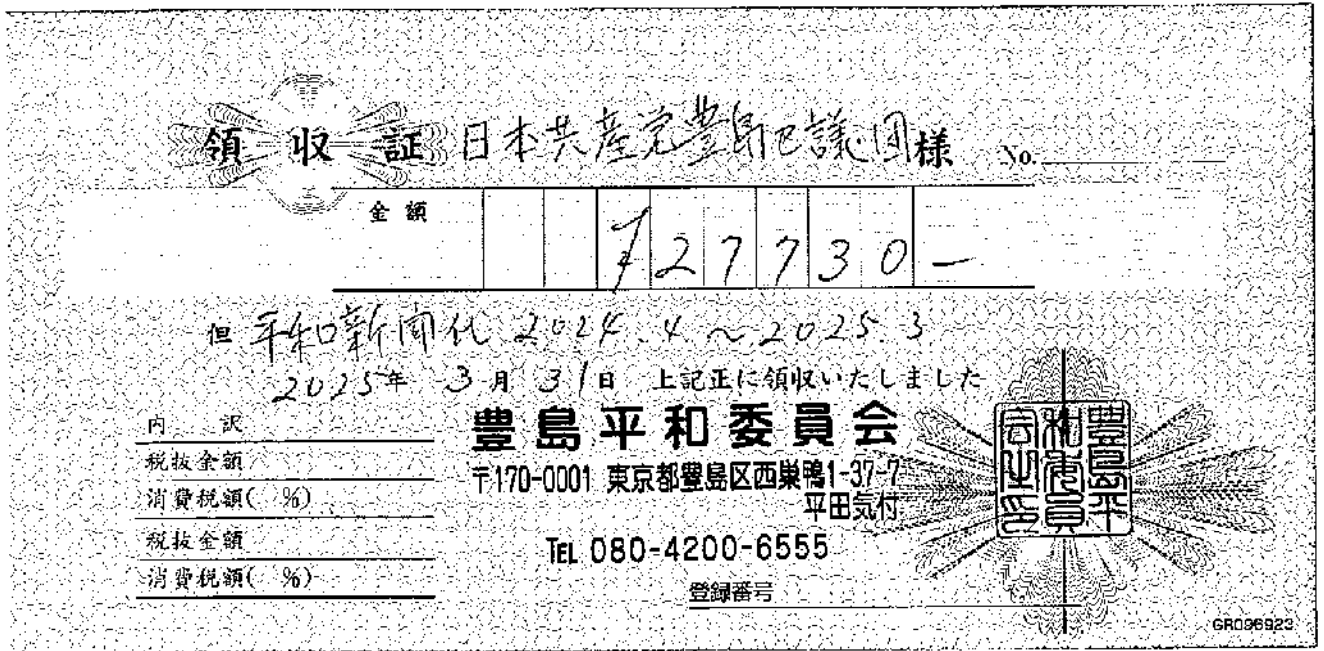 領収証 日本共産党豊島区議団様 No.
金額 ¥27730-
但 平和新聞代 2024.4~2025.3
2025年 3月 31日 上記正に領収いたしました
内訳
税抜金額
消費税額( %)
税抜金額
消費税額( %)
豊島平和委員会
〒170-0001 東京都豊島区西巣鴨1-37-7
平田気付
TEL 080-4200-6555
登録番号
豊島平和委員会之印
GR096923